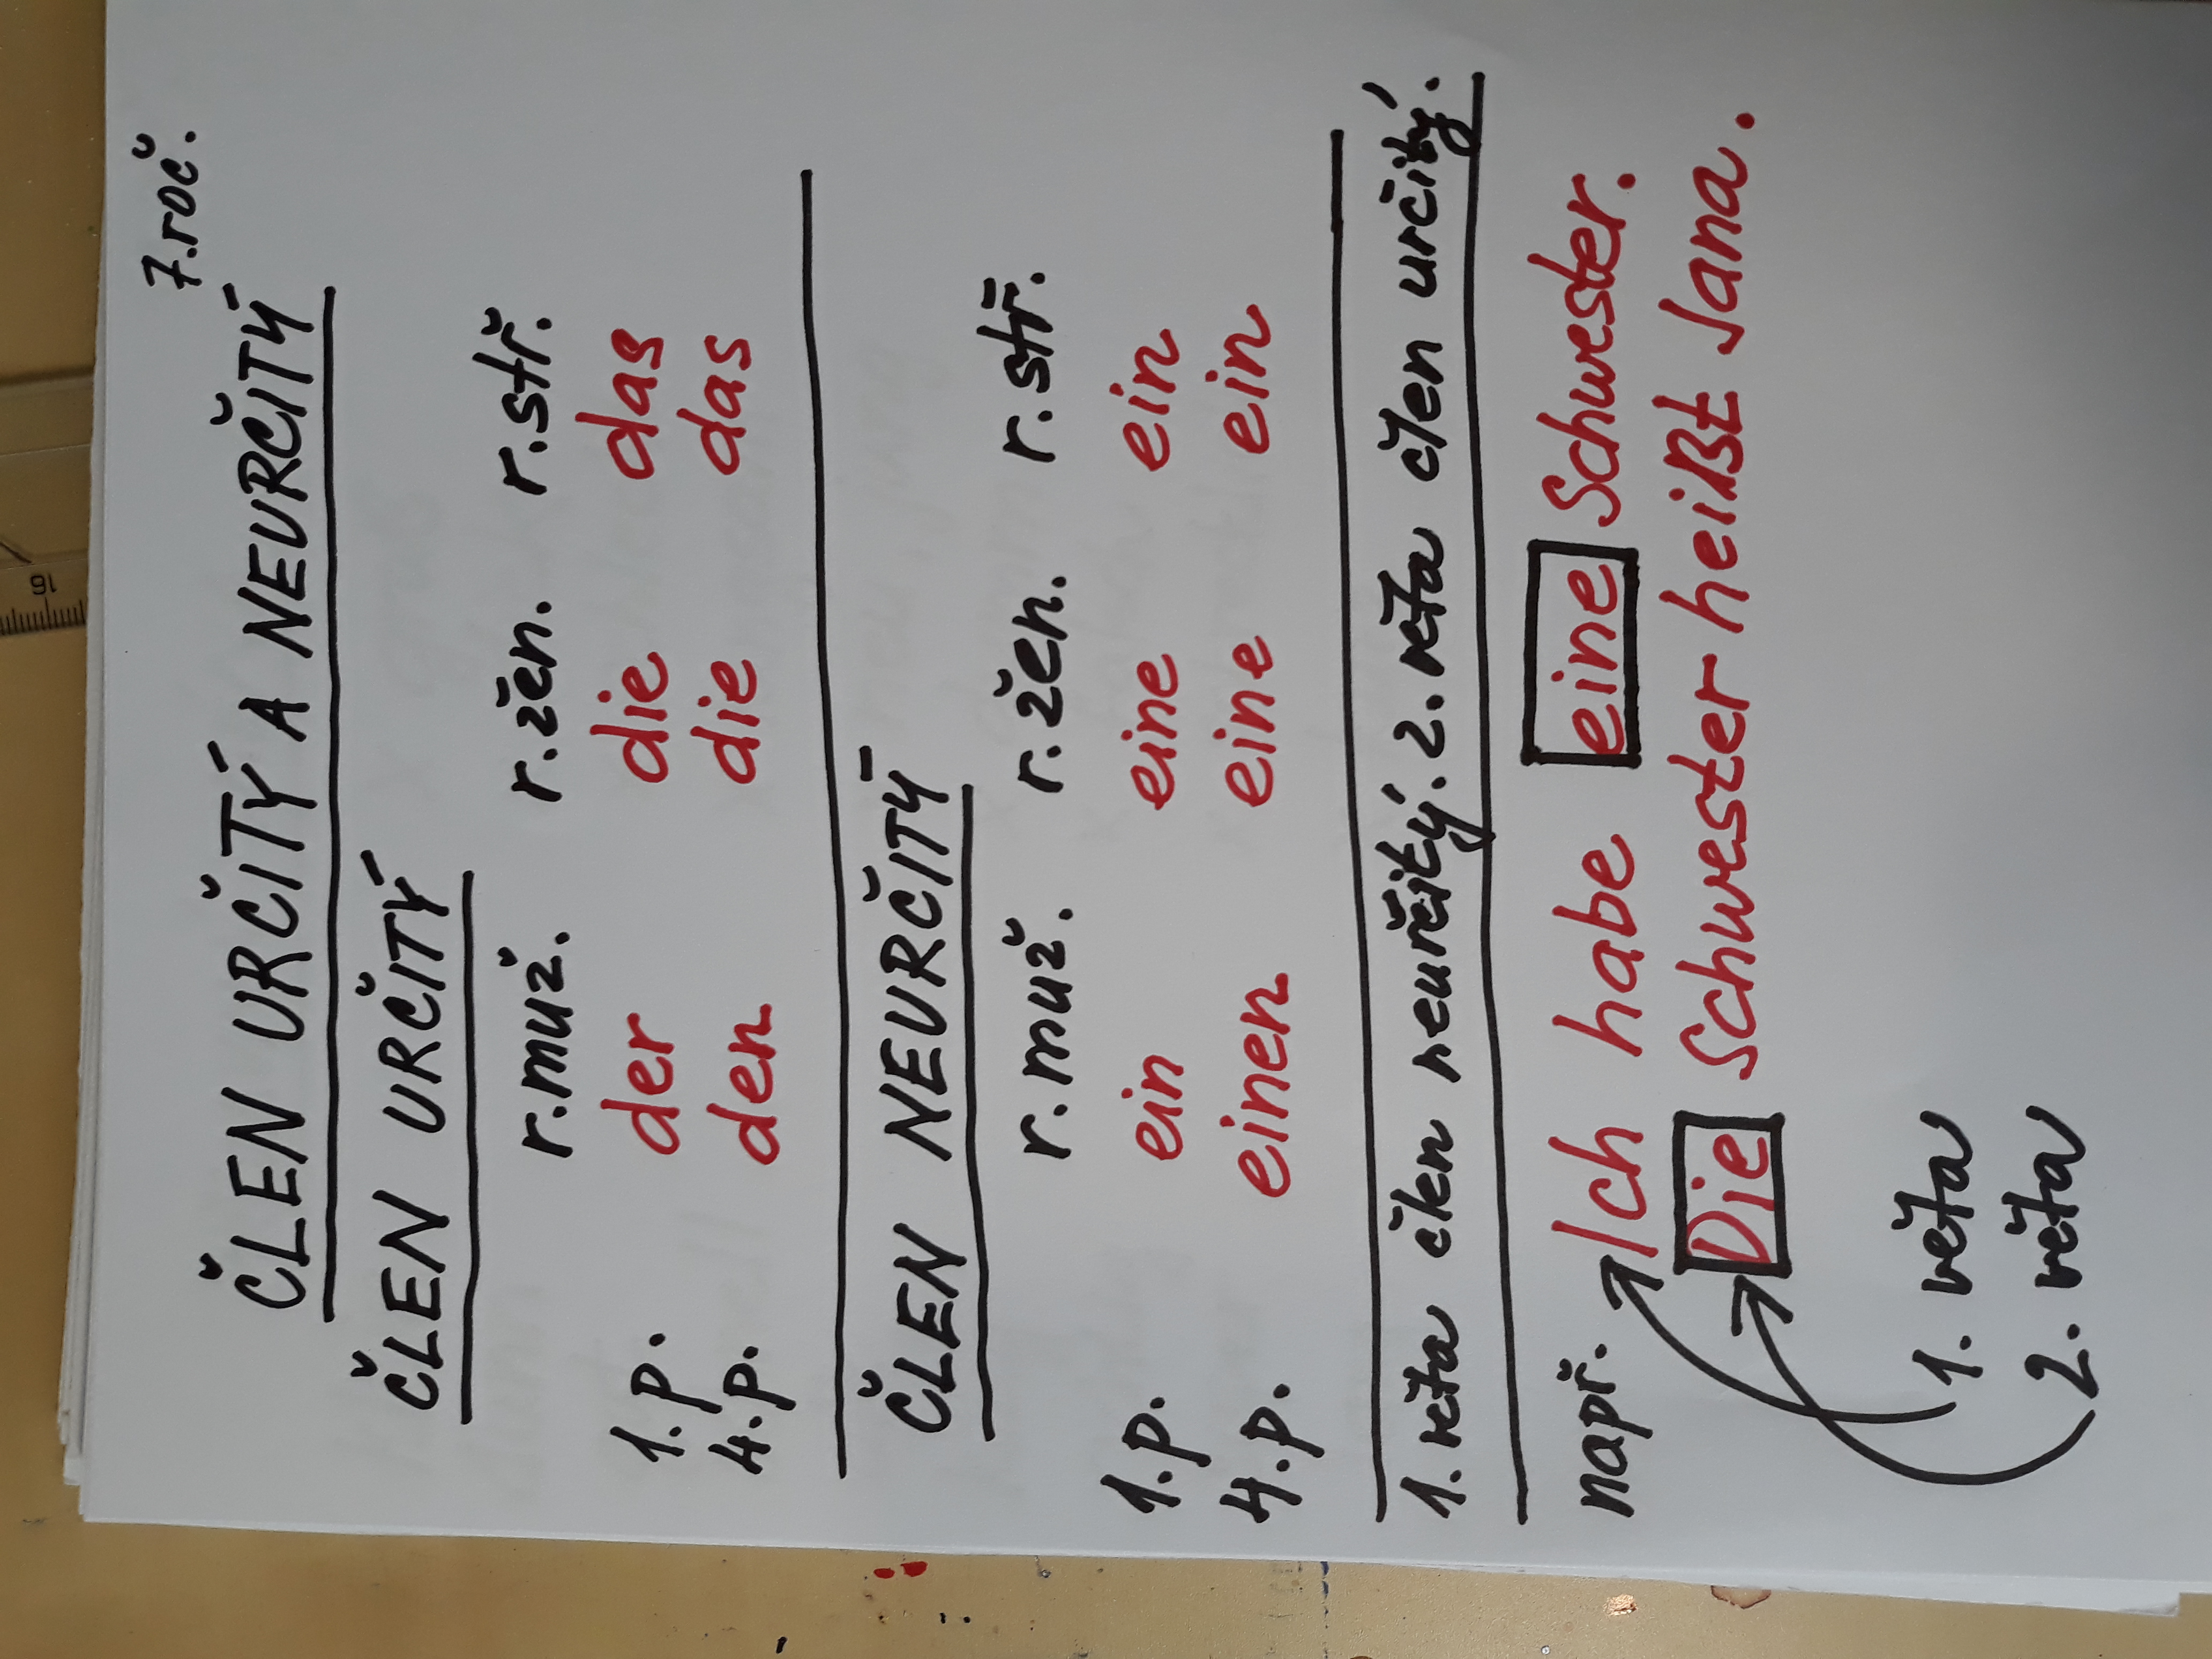 7.roč.
ČLEN URČITÝ A NEURČITÝ
ČLEN URČITÝ
r.muž. r.žen. r.stř.
1.p. der die das
4.p. den die das
ČLEN NEURČITÝ
r.muž. r.žen. r.stř.
1.p. ein eine ein
4.p. einen eine ein
1. věta člen neurčitý. 2. věta člen určitý.
např. Ich habe eine Schwester.
Die Schwester heißt Jana.
1. věta
2. věta
16